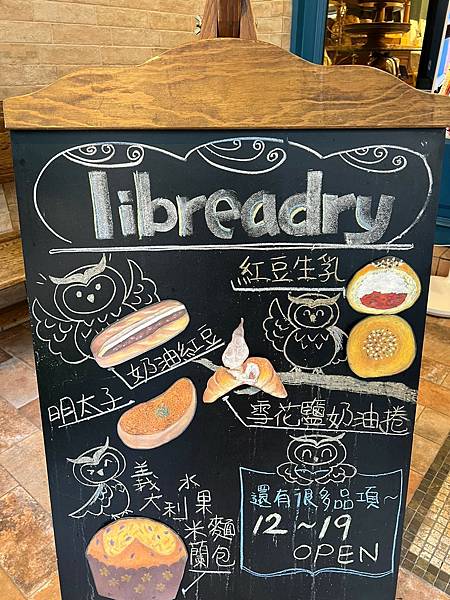 libreadry
紅豆生乳
奶油紅豆
明太子
雪花鹽奶油捲
義大利水果
米蘭麵包
還有很多品項~
12~19
OPEN